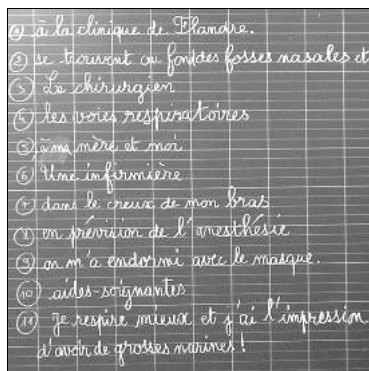 ① à la clinique de Flandre.
② se trouvent au fond des fosses nasales et
③ Le chirurgien
④ les voies respiratoires
⑤ à ma mère et moi
⑥ Une infirmière
⑦ dans le creux de mon bras
⑧ en prévision de l'anesthésie
⑨ on m'a endormi avec le masque.
⑩ aides-soignantes
⑪ Je respire mieux et j'ai l'impression
d'avoir de grosses narines !